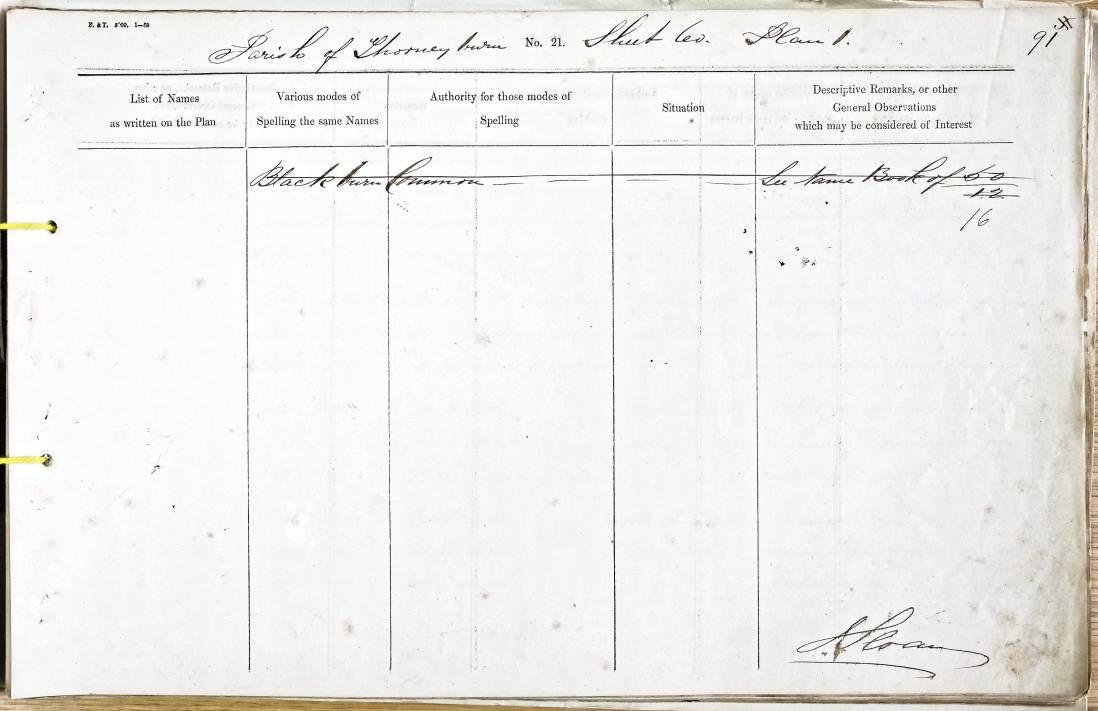 F. & T. 5'00. 1—59
Parish of Thorneyburn No. 21. Sheet 60. Plan 1.
91
List of Names
as written on the Plan
Various modes of
Spelling the same Names
Authority for those modes of
Spelling
Situation
Descriptive Remarks, or other
General Observations
which may be considered of Interest
Blackburn Common — — — — See Name Book of 50
12
16
J. Sloan